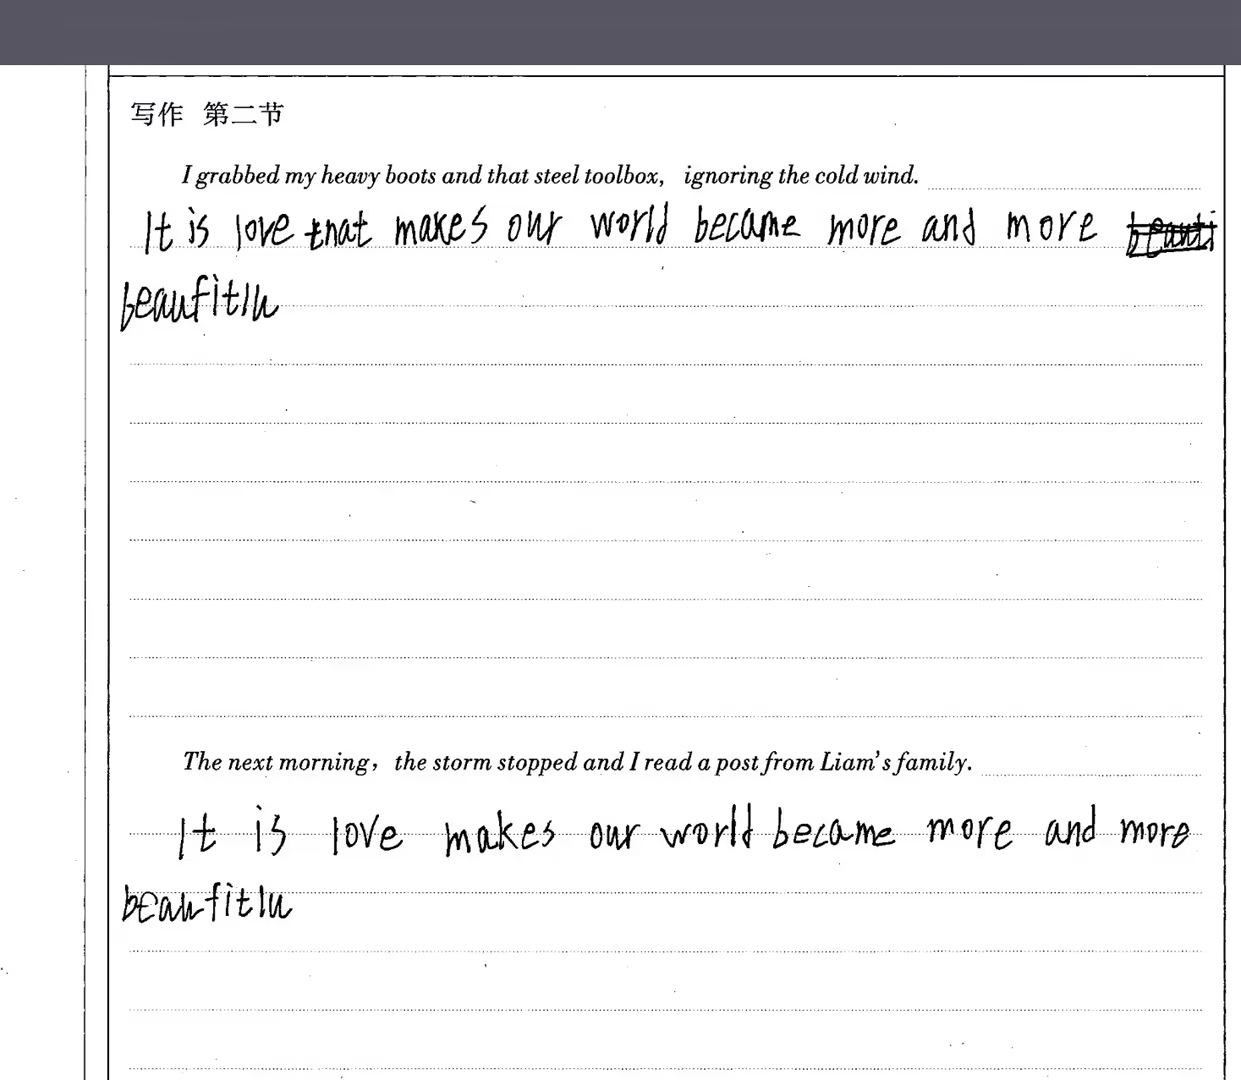 写作 第二节
I grabbed my heavy boots and that steel toolbox, ignoring the cold wind.
It is love that makes our world became more and more
beaufitlu
The next morning, the storm stopped and I read a post from Liam's family.
It is love makes our world became more and more
beaufitlu